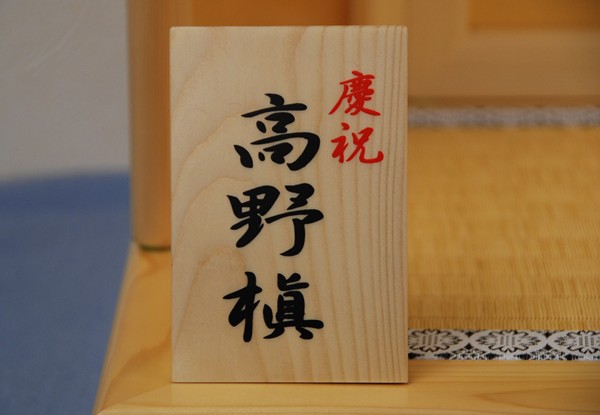 慶祝
高野槇